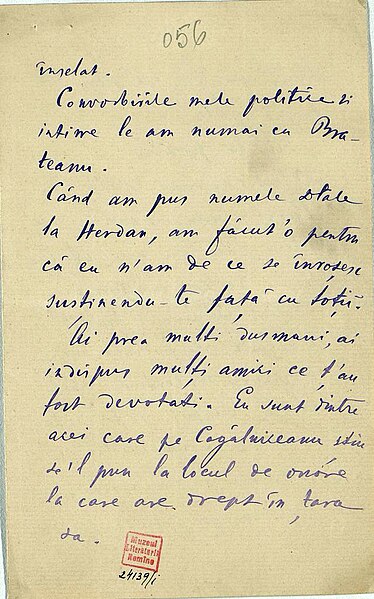 056
înșelat.
Convorbirile mele politice si
intime le am numai cu Bra-
teanu.
Când am pus numele dtale
la Herdan, am făcut'o pentru
că eu n'am de ce se înroșesc
susținendu-te față cu toții.
Ai prea multi dusmani, ai
indispus multi amici ce t'au
fost devotați. Eu sunt dintre
acei care pe Cogălniceanu stiu
să'l pun la locul de onóre
la care are drept in țara
sa.
Muzeul
Literaturii
Romîne
24139/i